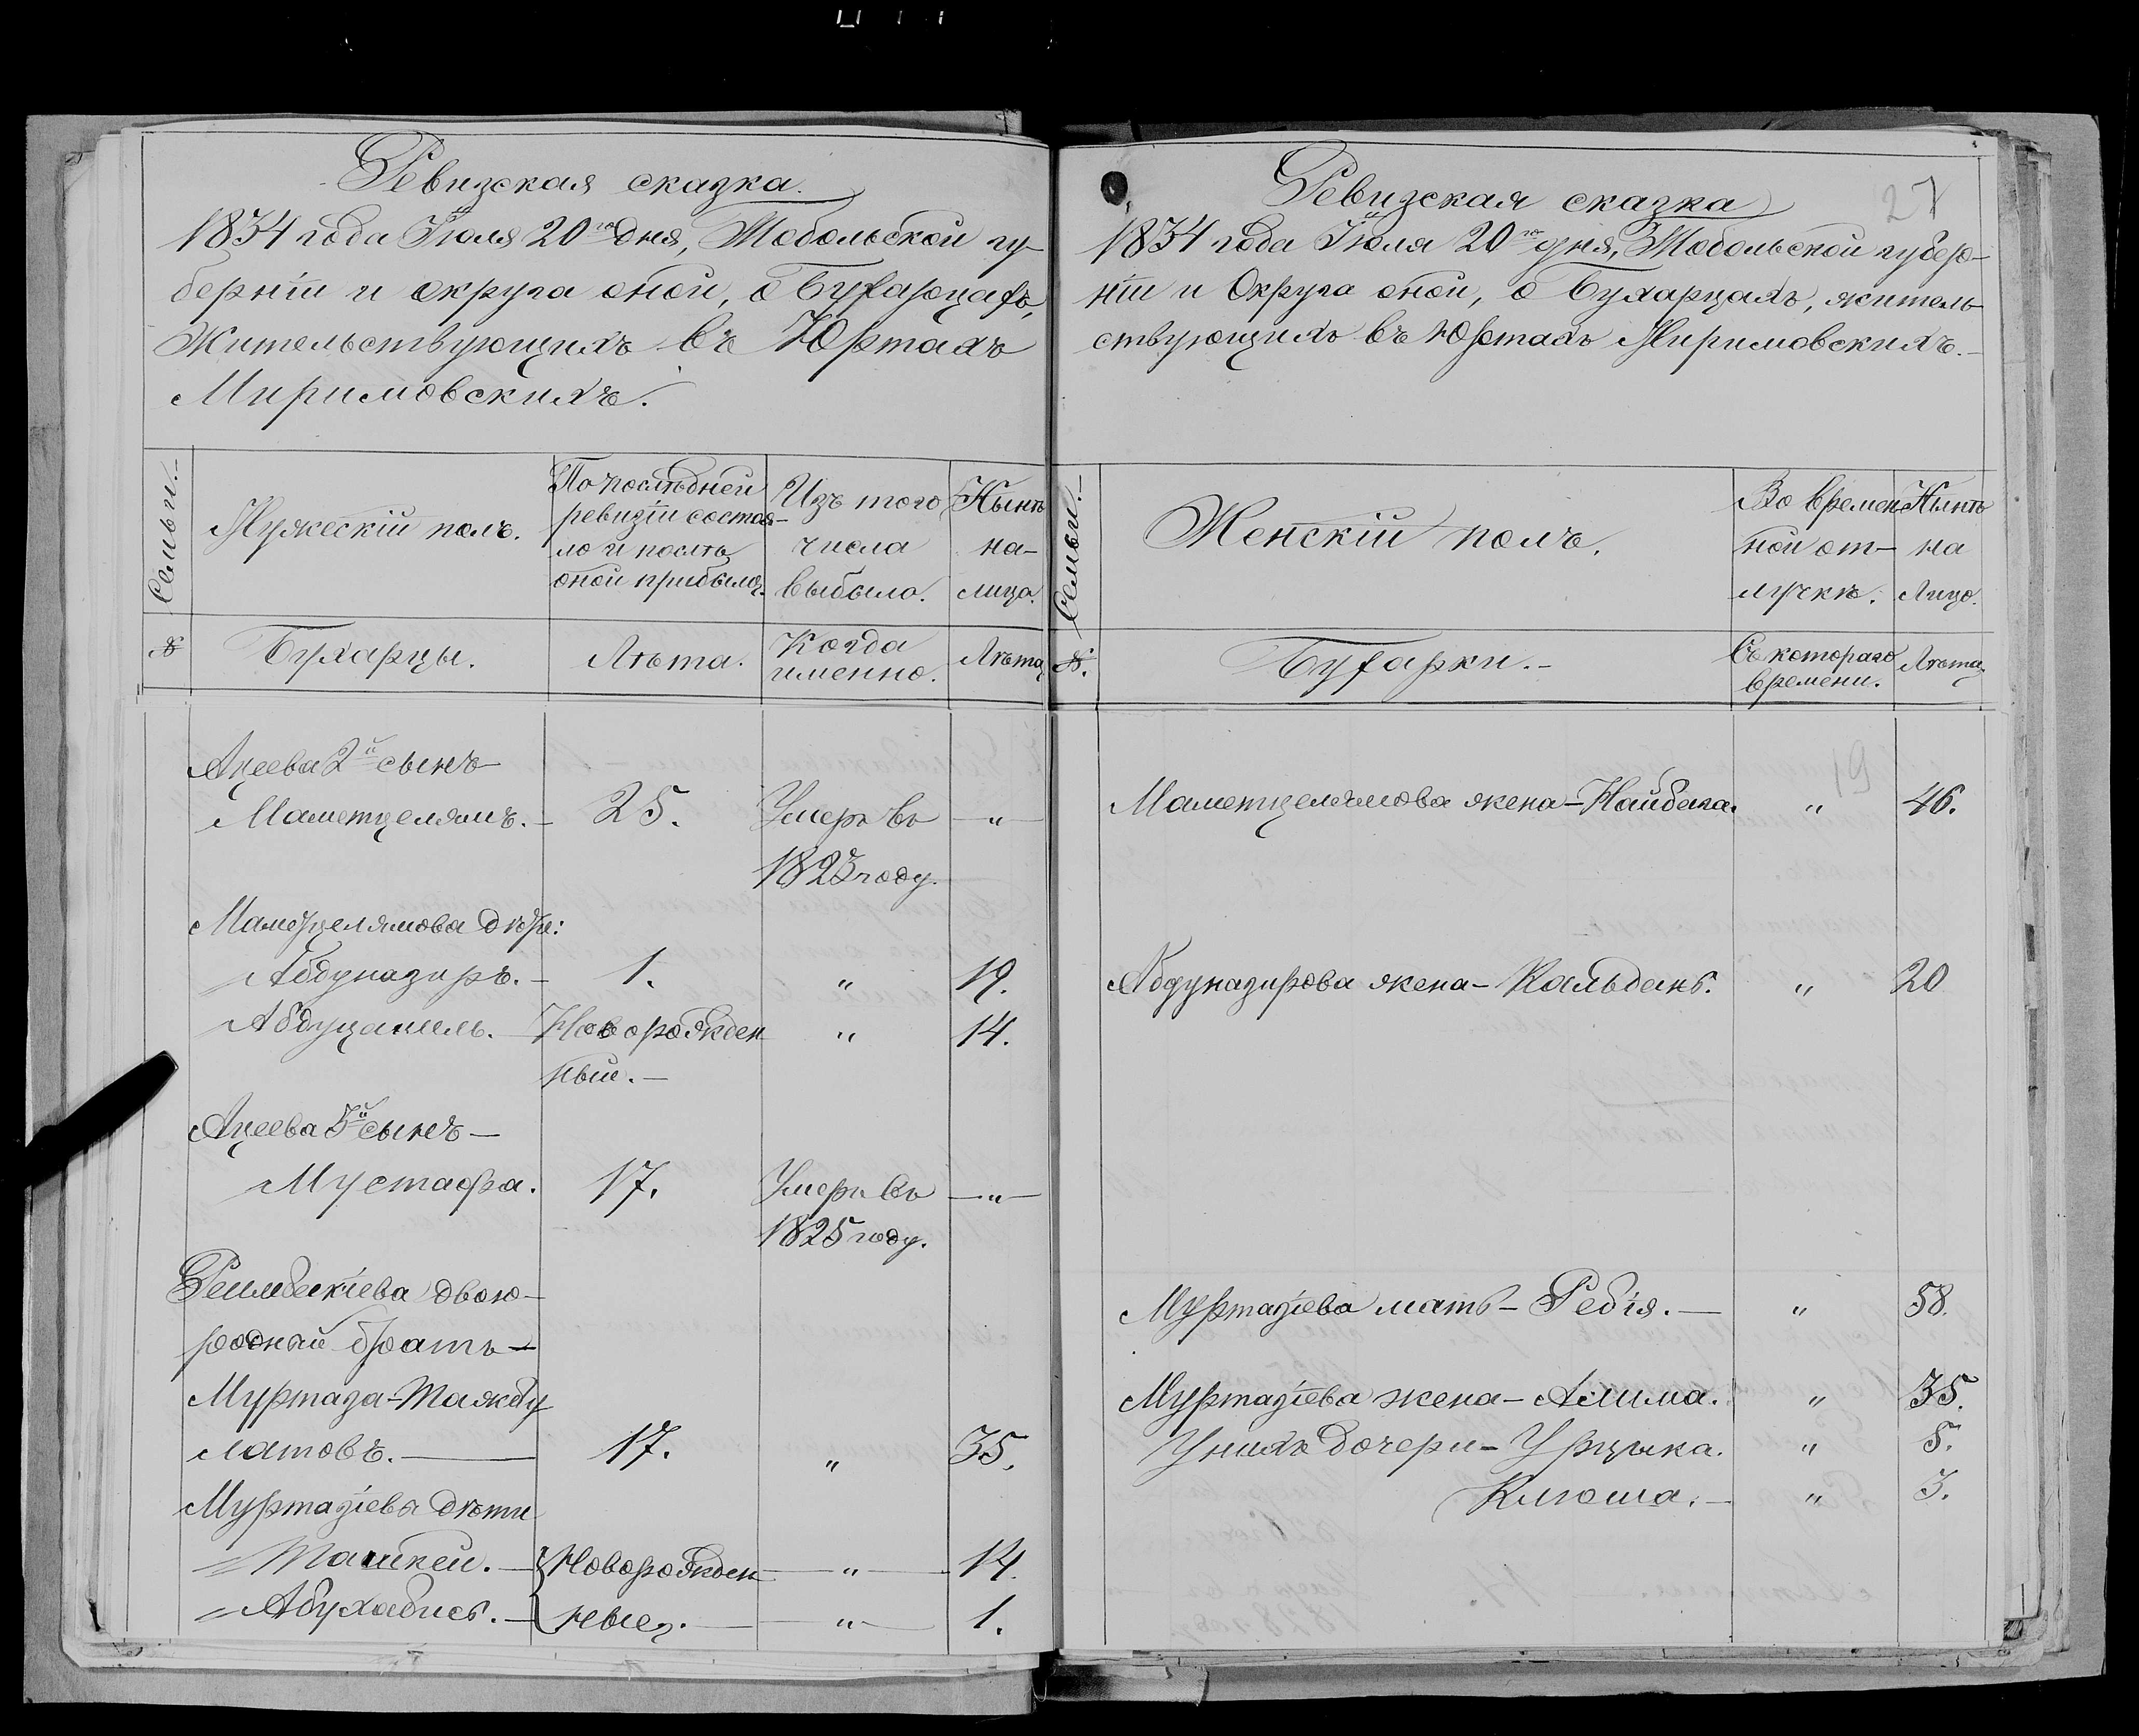 Ревизская сказка.
1834 года Іюля 20го дня, Тобольской гу-
берніи и округа оной, о Бухарцахъ,
Жительствующихъ въ Юртахъ
Миримовскихъ.
Семьи.
Мужескій полъ.
По послѣдней
ревизіи состоя-
ло и послѣ
оной прибыло.
Изъ того
числа
выбыло.
Нынѣ
на-
лицо.
№
Бухарцы.
Лѣта.
Когда
именно.
Лѣта
Ацеева 2й сынъ
Маметцелямъ. — 25. Умеръ въ — " —
1823 году.
Маметцелямова дѣти:
Абдуназиръ. — 1. " 19.
Абдуцамель. — Новорожден " 14.
ный. —
Ацеева 3й сынъ —
Мустафа. 17. Умеръ въ — " —
1825 году.
двою-
родный братъ —
Муртаза-Таяжбу
латовъ. — 17. " 35.
Муртазіева дѣти
Ташкеи. — Новорожден — " — 14.
Абухабисъ. — ные. — " — 1.
Ревизская сказка
27
1834 года Іюля 20го дня, Тобольской губер-
ніи и Округа оной, о Бухарцахъ, житель
ствующихъ въ Юртахъ Миримовскихъ. —
Семьи. —
Женскій полъ.
Во времен
ной от-
лучкѣ.
Нынѣ
на
Лицо.
№.
Бухарки. —
Съ котораго
времени.
Лѣта
19
Маметцелямова жена — Найбага. " 46.
Абдуназирова жена — Кальданъ. " 20
Муртазіева мать — Ребія. — " 58.
Муртазіева жена — Алима. " 35.
У нихъ дочери — Урцыка. " 5.
Клюша. — " 3.